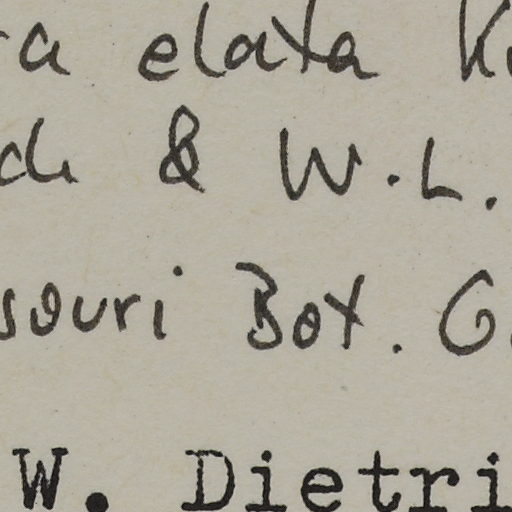 a elata K
d. & W.L.
souri Bot. G
W. Dietri